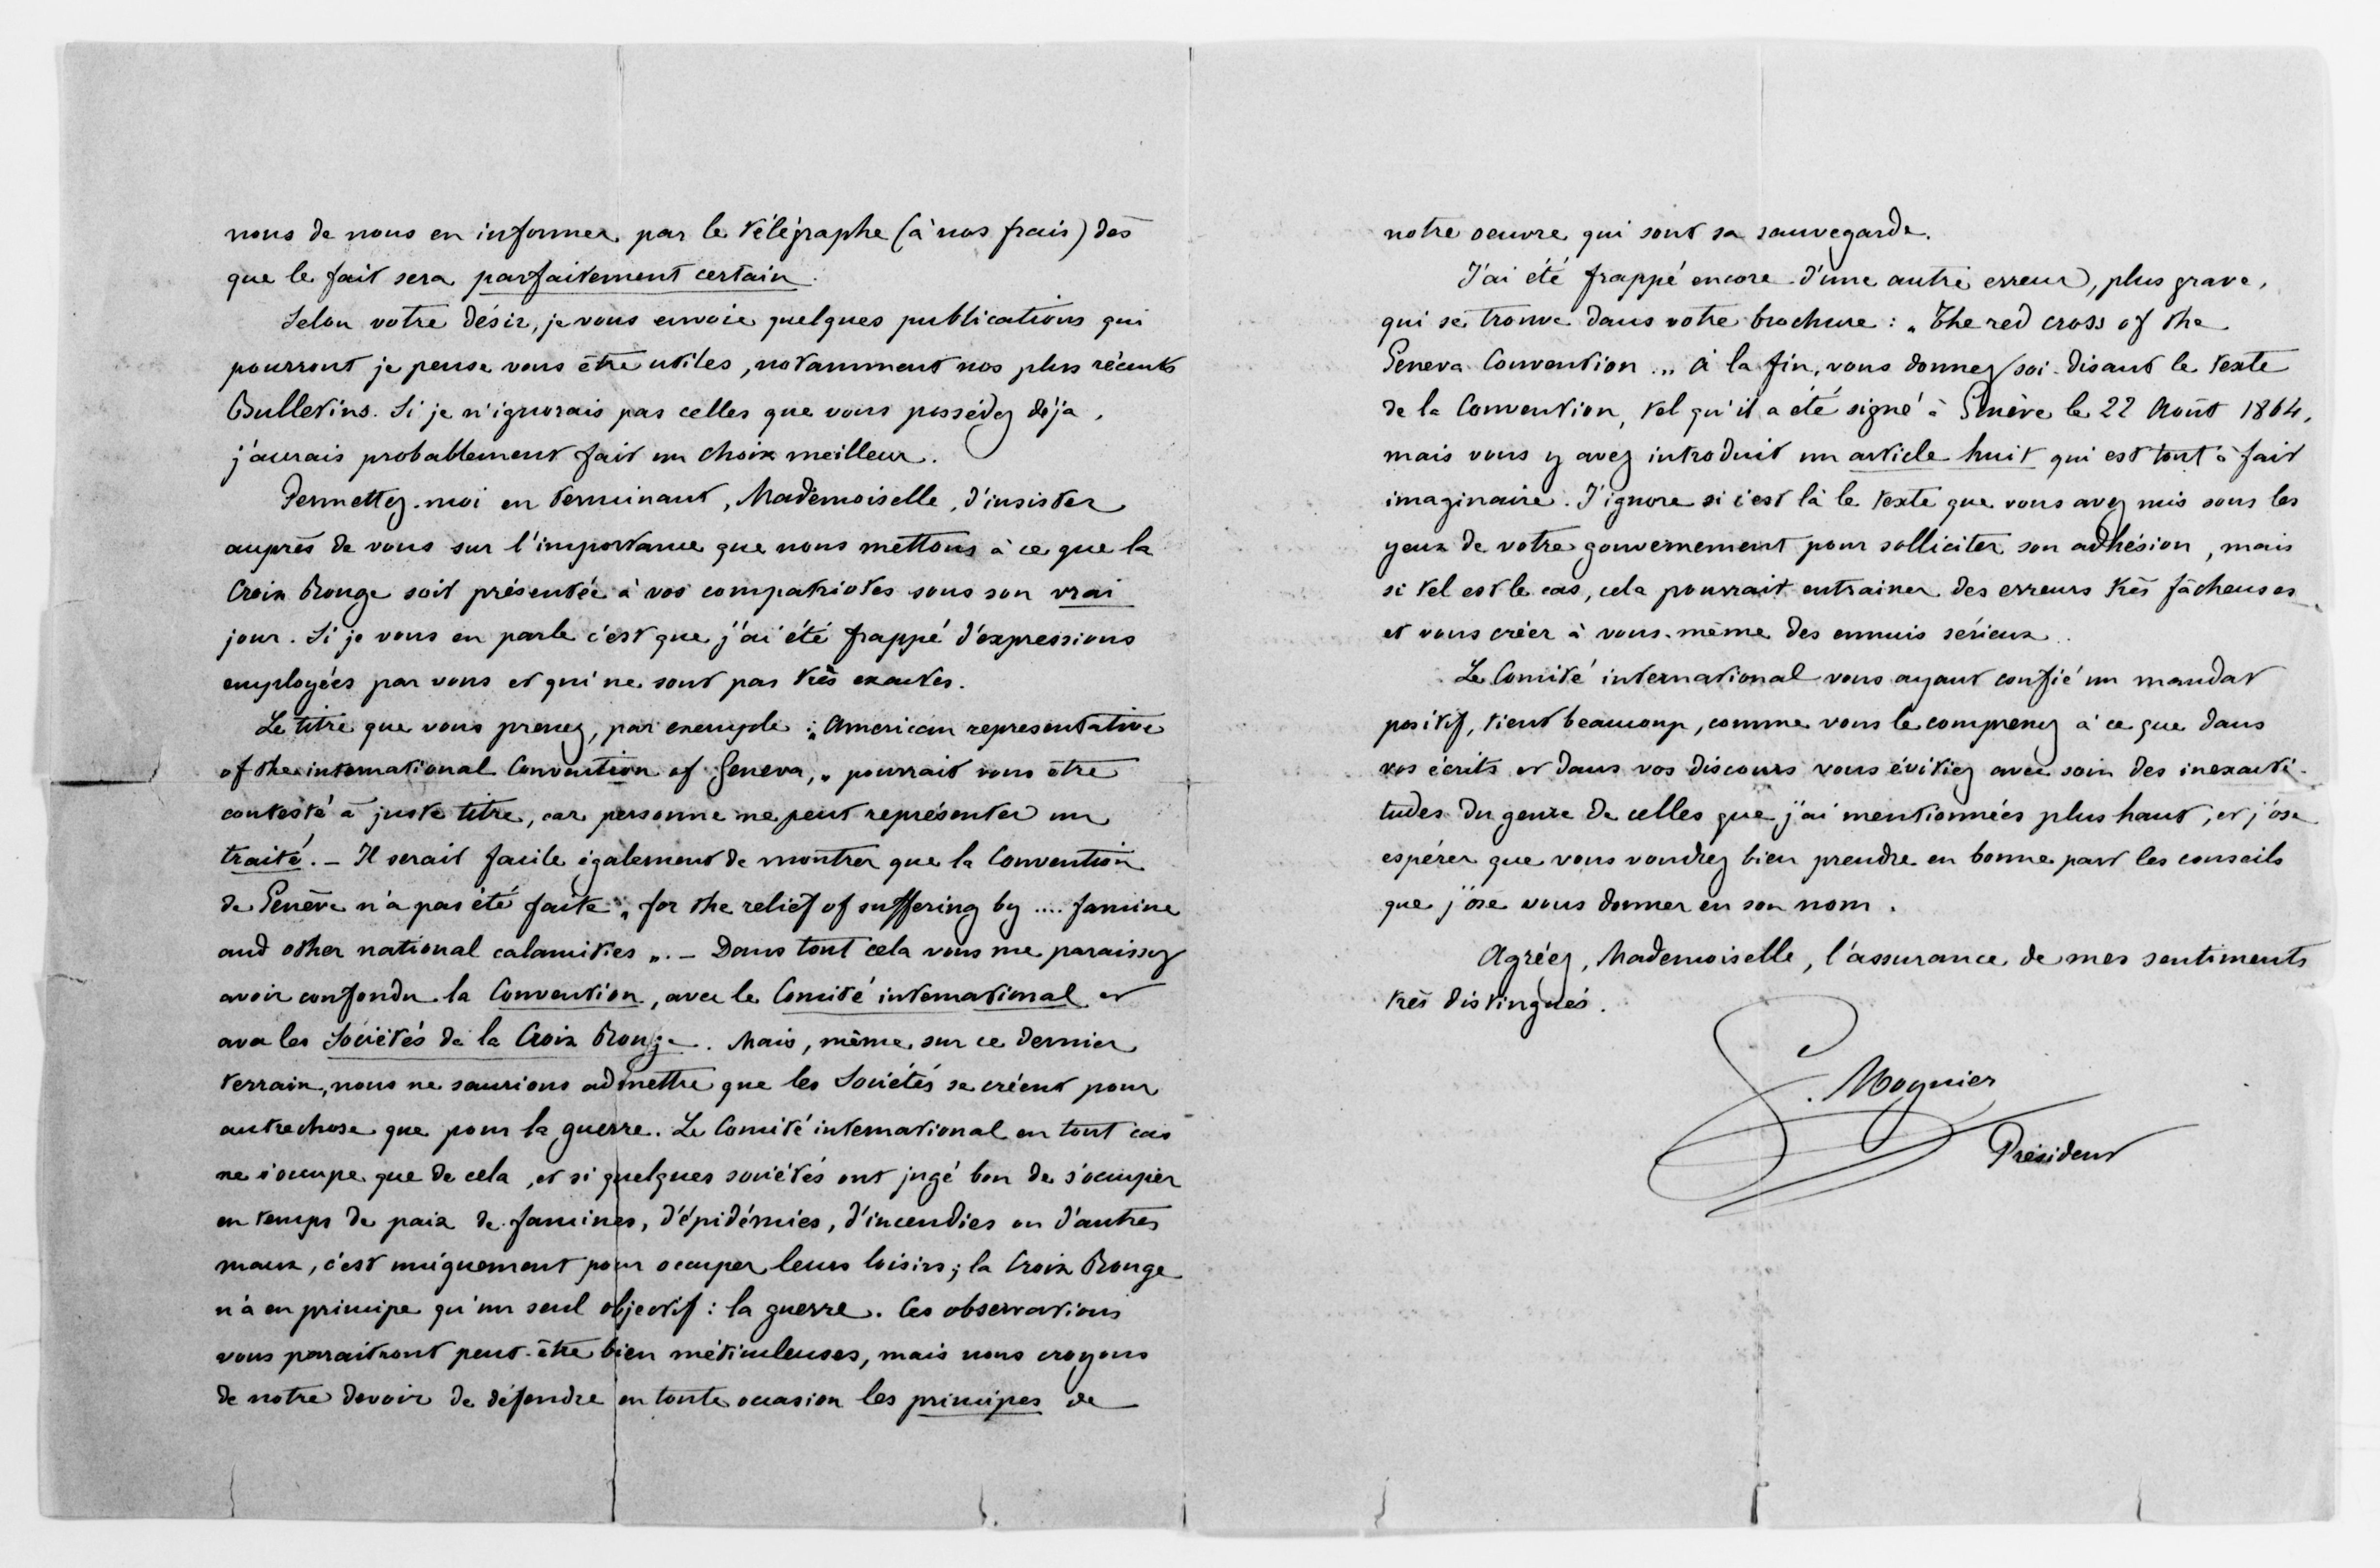 nous de nous en informer par le télégraphe (à nos frais) dès
que le fait sera parfaitement certain.
Selon votre désir, je vous envoie quelques publications qui
pourront je pense vous être utiles, notamment nos plus récents
Bulletins. Si je n'ignorais pas celles que vous possédez déja,
j'aurais probablement fait un choix meilleur.
Permettez-moi en terminant, Mademoiselle, d'insister
auprès de vous sur l'importance que nous mettons à ce que la
Croix Rouge soit présentée à vos compatriotes sous son vrai
jour. Si je vous en parle c'est que j'ai été frappé d'expressions
employées par vous et qui ne sont pas très exactes.
Le titre que vous prenez, par exemple : „American representative
of the international Convention of Geneva,„ pourrait vous être
contesté à juste titre, car personne ne peut représenter un
traité. – Il serait facile également de montrer que la Convention
de Genève n'a pas été faite „for the relief of suffering by .... famine
and other national calamities„. – Dans tout cela vous me paraissez
avoir confondu la Convention, avec le Comité international et
avec les Sociétés de la Croix Rouge. Mais, même sur ce dernier
terrain, nous ne saurions admettre que les Sociétés se créent pour
autre chose que pour la guerre. Le Comité international en tout cas
ne s'occupe que de cela, et si quelques sociétés ont jugé bon de s'occuper
en temps de paix de famines, d'épidémies, d'incendies ou d'autres
maux, c'est uniquement pour occuper leurs loisirs; la Croix Rouge
n'a en principe qu'un seul objectif : la guerre. Ces observations
vous paraitront peut-être bien méticuleuses, mais nous croyons
de notre devoir de défendre en toute occasion les principes de
notre oeuvre qui sont sa sauvegarde.
J'ai été frappé encore d'une autre erreur, plus grave,
qui se trouve dans votre brochure : „The red cross of the
Geneva Convention„. A la fin, vous donnez soi-disant le texte
de la Convention, tel qu'il a été signé à Genève le 22 Août 1864,
mais vous y avez introduit un article huit qui est tout à fait
imaginaire. J'ignore si c'est là le texte que vous avez mis sous les
yeux de votre gouvernement pour solliciter son adhésion, mais
si tel est le cas, cela pourrait entrainer des erreurs très fâcheuses
et vous créer à vous-même des ennuis sérieux.
Le Comité international vous ayant confié un mandat
positif, tient beaucoup, comme vous le comprenez à ce que dans
vos écrits et dans vos discours vous évitiez avec soin des inexacti-
tudes du genre de celles que j'ai mentionnées plus haut, et j'ose
espérer que vous voudrez bien prendre en bonne part les conseils
que j'ose vous donner en son nom.
Agréez, Mademoiselle, l'assurance de mes sentiments
très distingués.
G. Moynier
Président